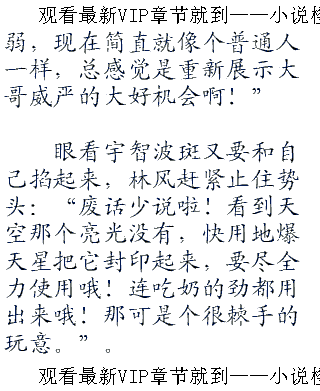 观看最新VIP章节就到——小说检
弱，现在简直就像个普通人
一样，总感觉是重新展示大
哥威严的大好机会啊！”
眼看宇智波斑又要和自
己掐起来，林风赶紧止住势
头：“废话少说啦！看到天
空那个亮光没有，快用地爆
天星把它封印起来，要尽全
力使用哦！连吃奶的劲都用
出来哦！那可是个很棘手的
玩意。”。
观看最新VIP章节就到——小说检